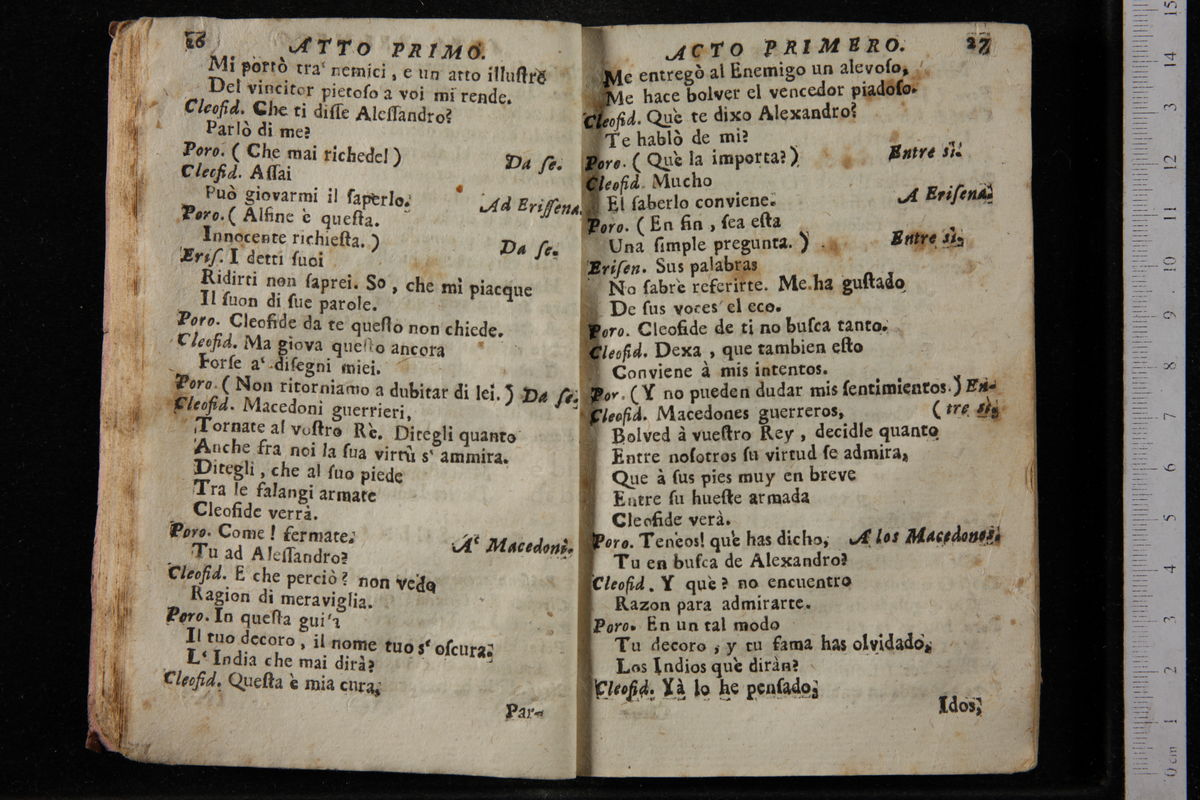 26
ATTO PRIMO.
Mi portò tra' nemici, e un atto illuſtre
Del vincitor pietoſo a voi mi rende.
Cleofid. Che ti diſſe Aleſſandro?
Parlò di me?
Poro. ( Che mai richede! ) Da ſe.
Cleofid. Aſſai
Può giovarmi il ſaperlo. Ad Eriſſena.
Poro. ( Alfine è queſta.
Innocente richieſta. ) Da ſe.
Eriſ. I detti ſuoi
Ridirti non ſaprei. So, che mi piacque
Il ſuon di ſue parole.
Poro. Cleofide da te queſto non chiede.
Cleofid. Ma giova queſto ancora
Forſe a' diſegni miei.
Poro. ( Non ritorniamo a dubitar di lei. ) Da ſe.
Cleofid. Macedoni guerrieri,
Tornate al voſtro Rè. Ditegli quanto
Anche fra noi la ſua virtù s' ammira.
Ditegli, che al ſuo piede
Tra le falangi armate
Cleofide verrà.
Poro. Come! fermate. A' Macedoni.
Tu ad Aleſſandro?
Cleofid. E che perciò? non vedo
Ragion di meraviglia.
Poro. In queſta
Il tuo decoro, il nome tuo s' oſcura.
L' India che mai dirà?
Cleofid. Queſta è mia cura,
Par-
ACTO PRIMERO. 27
Me entregò al Enemigo un alevoſo,
Me hace bolver el vencedor piadoſo.
Cleofid. Què te dixo Alexandro?
Te hablò de mi?
Poro. ( Què la importa? ) Entre sì.
Cleofid. Mucho
El ſaberlo conviene. A Eriſena.
Poro. ( En fin, ſea eſta
Una ſimple pregunta. ) Entre sì.
Eriſen. Sus palabras
No ſabrè referirte. Me ha guſtado
De ſus voces el eco.
Poro. Cleofide de ti no buſca tanto.
Cleofid. Dexa, que tambien eſto
Conviene à mis intentos.
Por. ( Y no pueden dudar mis ſentimientos. ) En-
Cleofid. Macedones guerreros, ( tre sì.
Bolved à vueſtro Rey, decidle quanto
Entre noſotros ſu virtud ſe admira,
Que à ſus pies muy en breve
Entre ſu hueſte armada
Cleofide verà.
Poro. Teneos! què has dicho, A los Macedones.
Tu en buſca de Alexandro?
Cleofid. Y què? no encuentro
Razon para admirarte.
Poro. En un tal modo
Tu decoro, y tu fama has olvidado,
Los Indios què diràn?
Cleofid. Yà lo he penſado,
Idos,
15
14
13
12
11
10
9
8
7
6
5
4
3
2
1
0 cm